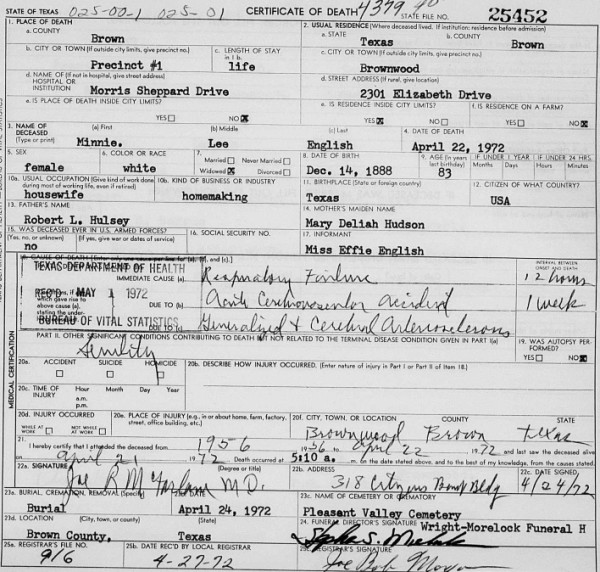 STATE OF TEXAS 025-00-1 025-01 CERTIFICATE OF DEATH 4379 STATE FILE NO. 25452
1. PLACE OF DEATH 2. USUAL RESIDENCE (Where deceased lived. If institution: residence before admission)
a. COUNTY a. STATE b. COUNTY
Brown Texas Brown
b. CITY OR TOWN (If outside city limits, give precinct no.) c. LENGTH OF STAY in 1 b. c. CITY OR TOWN (If outside city limits, give precinct no.)
Precinct #1 life Brownwood
d. NAME OF (If not in hospital, give street address) HOSPITAL OR INSTITUTION d. STREET ADDRESS (If rural, give location)
Morris Sheppard Drive 2301 Elizabeth Drive
e. IS PLACE OF DEATH INSIDE CITY LIMITS? e. IS RESIDENCE INSIDE CITY LIMITS? f. IS RESIDENCE ON A FARM?
YES NO X YES X NO YES NO X
3. NAME OF DECEASED (Type or print) (a) First (b) Middle (c) Last 4. DATE OF DEATH
Minnie. Lee English April 22, 1972
5. SEX 6. COLOR OR RACE 7. Married Never Married Widowed X Divorced 8. DATE OF BIRTH 9. AGE (In years last birthday) IF UNDER 1 YEAR Months Days IF UNDER 24 HRS. Hours Minutes
female white Dec. 14, 1888 83
10a. USUAL OCCUPATION (Give kind of work done during most of working life, even if retired) 10b. KIND OF BUSINESS OR INDUSTRY 11. BIRTHPLACE (State or foreign country) 12. CITIZEN OF WHAT COUNTRY?
housewife homemaking Texas USA
13. FATHER'S NAME 14. MOTHER'S MAIDEN NAME
Robert L. Hulsey Mary Deliah Hudson
15. WAS DECEASED EVER IN U.S. ARMED FORCES? (Yes, no, or unknown) (If yes, give war or dates of service) 16. SOCIAL SECURITY NO. 17. INFORMANT
no Miss Effie English
CAUSE OF DEATH INTERVAL BETWEEN ONSET AND DEATH
TEXAS DEPARTMENT OF HEALTH IMMEDIATE CAUSE (a) Respiratory Failure 12 hours
REC'D MAY 1 1972 DUE TO (b) Acute Cerebrovascular accident 1 week
BUREAU OF VITAL STATISTICS DUE TO (c) Generalized & Cerebral Arteriosclerosis
PART II. OTHER SIGNIFICANT CONDITIONS CONTRIBUTING TO DEATH BUT NOT RELATED TO THE TERMINAL DISEASE CONDITION GIVEN IN PART I(a) 19. WAS AUTOPSY PERFORMED?
Senility YES NO X
MEDICAL CERTIFICATION
20a. ACCIDENT SUICIDE HOMICIDE 20b. DESCRIBE HOW INJURY OCCURRED. (Enter nature of injury in Part I or Part II of Item 18.)
20c. TIME OF INJURY Hour Month Day Year a.m. p.m.
20d. INJURY OCCURRED WHILE AT WORK NOT WHILE AT WORK 20e. PLACE OF INJURY (e.g., in or about home, farm, factory, street, office building, etc.) 20f. CITY, TOWN, OR LOCATION COUNTY STATE
Brownwood Brown Texas
21. I hereby certify that I attended the deceased from 1956 1956 to April 22 1972 and last saw the deceased alive
on April 21 1972 Death occurred at 5:10 a. m. on the date stated above, and to the best of my knowledge, from the causes stated.
22a. SIGNATURE (Degree or title) 22b. ADDRESS 22c. DATE SIGNED
Joe R McFarlane M.D. 318 Citizens Bank Bldg 4/24/72
23a. BURIAL, CREMATION, REMOVAL (Specify) DATE 23c. NAME OF CEMETERY OR CREMATORY
Burial April 24, 1972 Pleasant Valley Cemetery
23d. LOCATION (City, town, or county) (State) 24. FUNERAL DIRECTOR'S SIGNATURE Wright-Morelock Funeral H
Brown County, Texas
25a. REGISTRAR'S FILE NO. 25b. DATE REC'D BY LOCAL REGISTRAR 25c. REGISTRAR'S SIGNATURE
916 4-27-72 Joe Bob